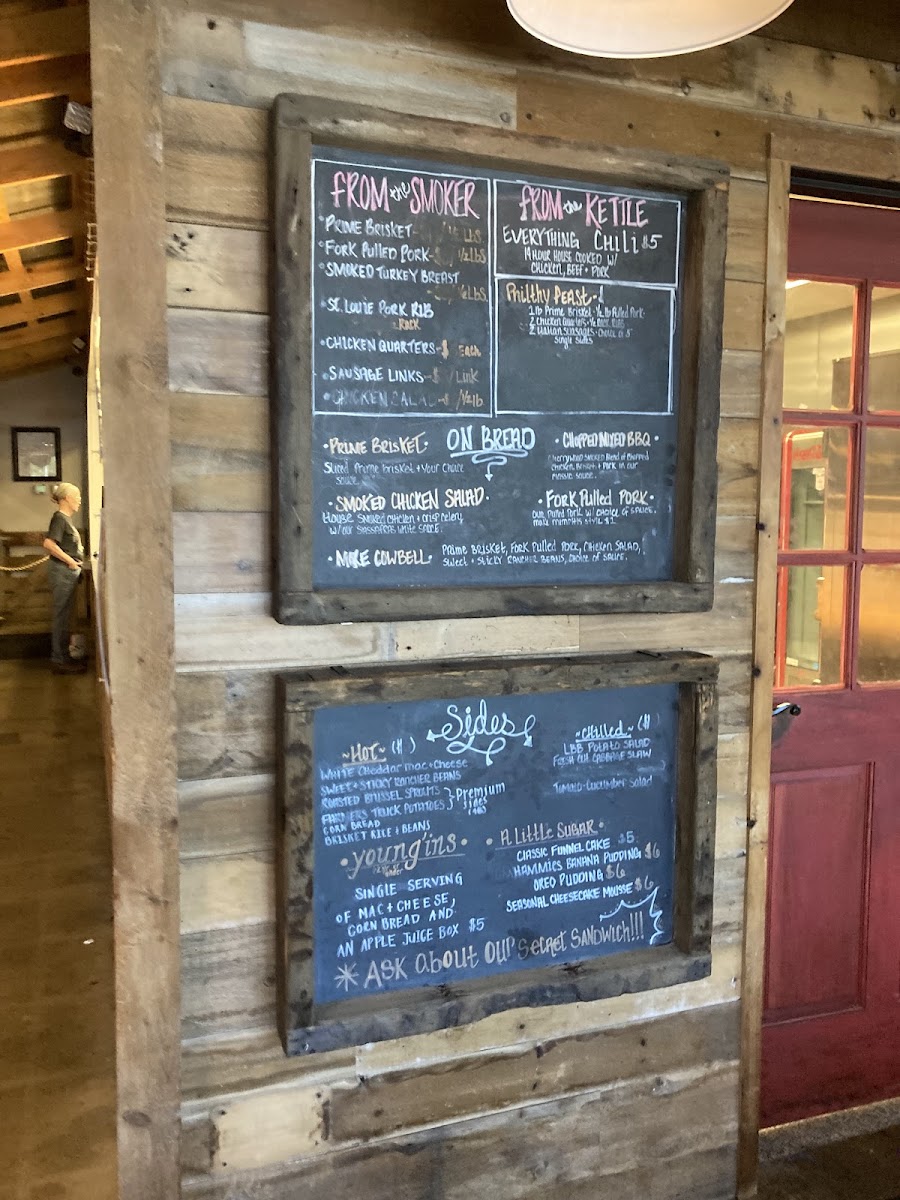 FROM the SMOKER
•PRIME BRISKET- / ½ LBS
•FORK PULLED PORK-$ / ½ LBS
•SMOKED TURKEY BREAST
/ ½ LBS
•ST. LOUIE PORK RIB
RACK
•CHICKEN QUARTERS-$ Each
•SAUSAGE LINKS-$ / LINK
•CHICKEN SALAD-$ / ½ lb
FROM the KETTLE
EVERYTHING Chili $5
14 HOUR HOUSE COOKED W/
CHICKEN, BEEF + PORK
Philthy Feast-
1 lb Prime Brisket - ½ lb Pulled Pork-
2 Chicken Quarters-½ RACK RIBS
2 Italian Sausages - Choice of 3
Single Sides
ON BREAD
•PRIME BRISKET•
Sliced Prime brisket + Your Choice
SAUCE.
•SMOKED CHICKEN SALAD•
House SMOKED CHICKEN + CRISP CELERY
W/OUR SASSAFRAS WHITE SAUCE.
•MORE COWBELL•
Prime BRISKET, FORK Pulled PORK, CHICKEN SALAD,
Sweet + STICKY RANCHER BEANS, CHOICE OF SAUCE.
•CHOPPED MIXED BBQ•
Cherrywood Smoked Blend of Chopped
Chicken, Brisket + Pork in our
SAUCE.
•FORK Pulled PORK•
OUR Pulled PORK W/ CHOICE OF SAUCE.
MAKE MEMPHIS STYLE $1
Sides
~HOT~ ( )
WHITE CHEDDAR MAC + CHEESE
SWEET + STICKY RANCHER BEANS
ROASTED BRUSSEL SPROUTS
FARMERS TRUCK POTATOES
} Premium
Sides
CORN BREAD
BRISKET RICE + BEANS
~CHILLED~ ( )
LBB POTATO SALAD
FRESH CUT CABBAGE SLAW
TOMATO-CUCUMBER SALAD
•youngins•
under
SINGLE SERVING
OF MAC + CHEESE,
CORN BREAD AND
AN APPLE JUICE BOX $5
•A Little SUGAR•
CLASSIC FUNNEL CAKE $5
HAMMICS BANANA PUDDING $6
OREO PUDDING $6
SEASONAL CHEESECAKE MOUSSE $6
*ASK about OUR SECRET SANDWICH!!!